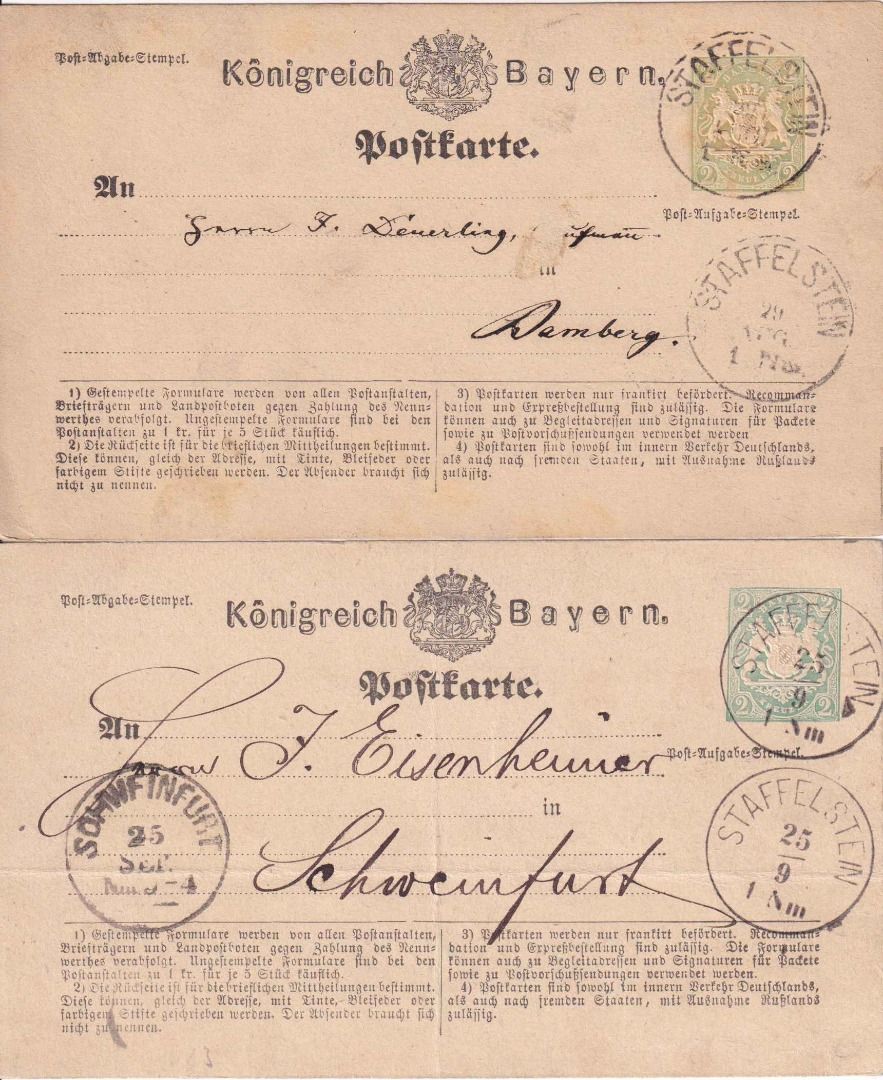 Post-Abgabe-Stempel.
Königreich Bayern.
STAFFELSTEIN
2 2
Postkarte.
An
Post-Aufgabe-Stempel.
Herrn J. Deuerling,
in
STAFFELSTEIN
29
AUG
1 Nm.
Bamberg.
1) Gestempelte Formulare werden von allen Postanstalten,
Briefträgern und Landpostboten gegen Zahlung des Nenn-
werthes verabfolgt. Ungestempelte Formulare sind bei den
Postanstalten zu 1 kr. für je 5 Stück käuflich.
2) Die Rückseite ist für die brieflichen Mittheilungen bestimmt.
Diese können, gleich der Adresse, mit Tinte, Bleifeder oder
farbigem Stifte geschrieben werden. Der Absender braucht sich
nicht zu nennen.
3) Postkarten werden nur frankirt befördert. Recomman-
dation und Expreßbestellung sind zulässig. Die Formulare
können auch zu Begleitadressen und Signaturen für Packete
sowie zu Postvorschußsendungen verwendet werden
4) Postkarten sind sowohl im innern Verkehr Deutschlands,
als auch nach fremden Staaten, mit Ausnahme Rußlands
zulässig.
Post-Abgabe-Stempel.
Königreich Bayern.
2 2
2 2
STAFFELSTEIN
25
9
1 Nm
Postkarte.
An
Post-Aufgabe-Stempel.
Herrn J. Eisenheimer
in
Schweinfurt
SCHWEINFURT
25
SEP.
Nm 3-4
STAFFELSTEIN
25
9
1 Nm
1) Gestempelte Formulare werden von allen Postanstalten,
Briefträgern und Landpostboten gegen Zahlung des Nenn-
werthes verabfolgt. Ungestempelte Formulare sind bei den
Postanstalten zu 1 kr. für je 5 Stück käuflich.
2) Die Rückseite ist für die brieflichen Mittheilungen bestimmt.
Diese können, gleich der Adresse, mit Tinte, Bleifeder oder
farbigem Stifte geschrieben werden. Der Absender braucht sich
nicht zu nennen.
3) Postkarten werden nur frankirt befördert. Recomman-
dation und Expreßbestellung sind zulässig. Die Formulare
können auch zu Begleitadressen und Signaturen für Packete
sowie zu Postvorschußsendungen verwendet werden.
4) Postkarten sind sowohl im innern Verkehr Deutschlands,
als auch nach fremden Staaten, mit Ausnahme Rußlands
zulässig.